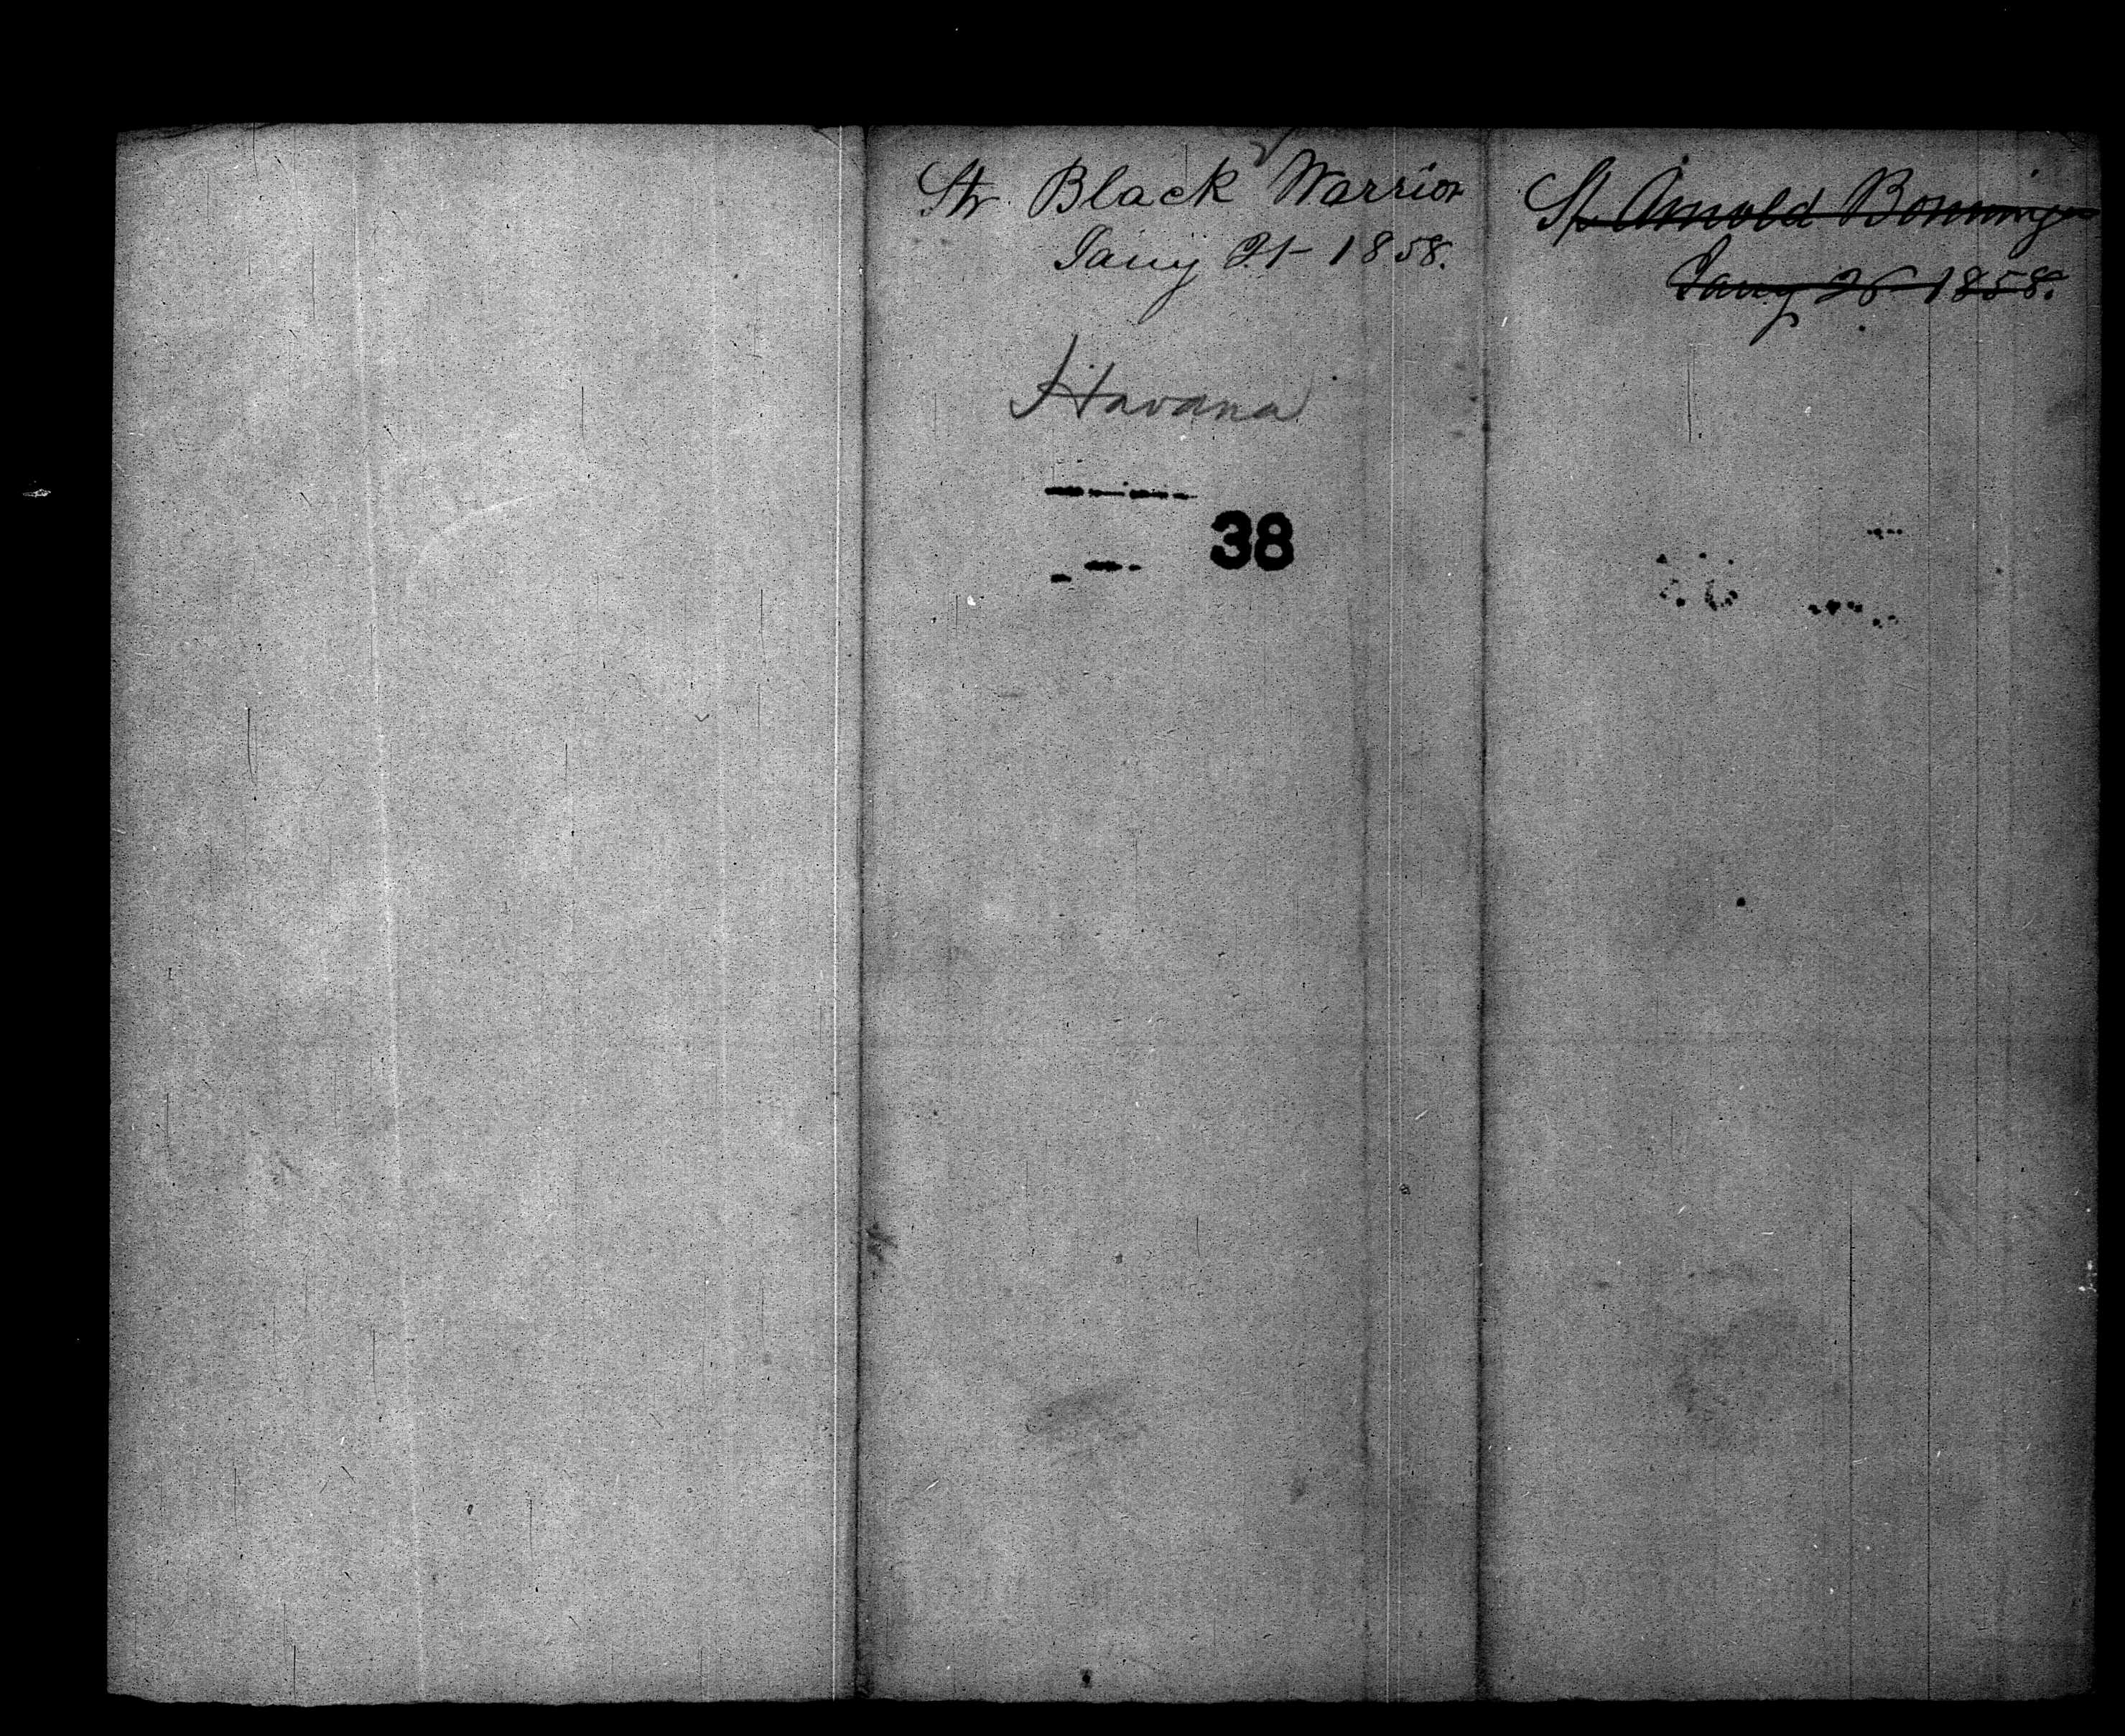 Str Black Warrior
Jany 21- 1858.
Havana
38
Sp Arnold Bonninger
Jany 26 1858.